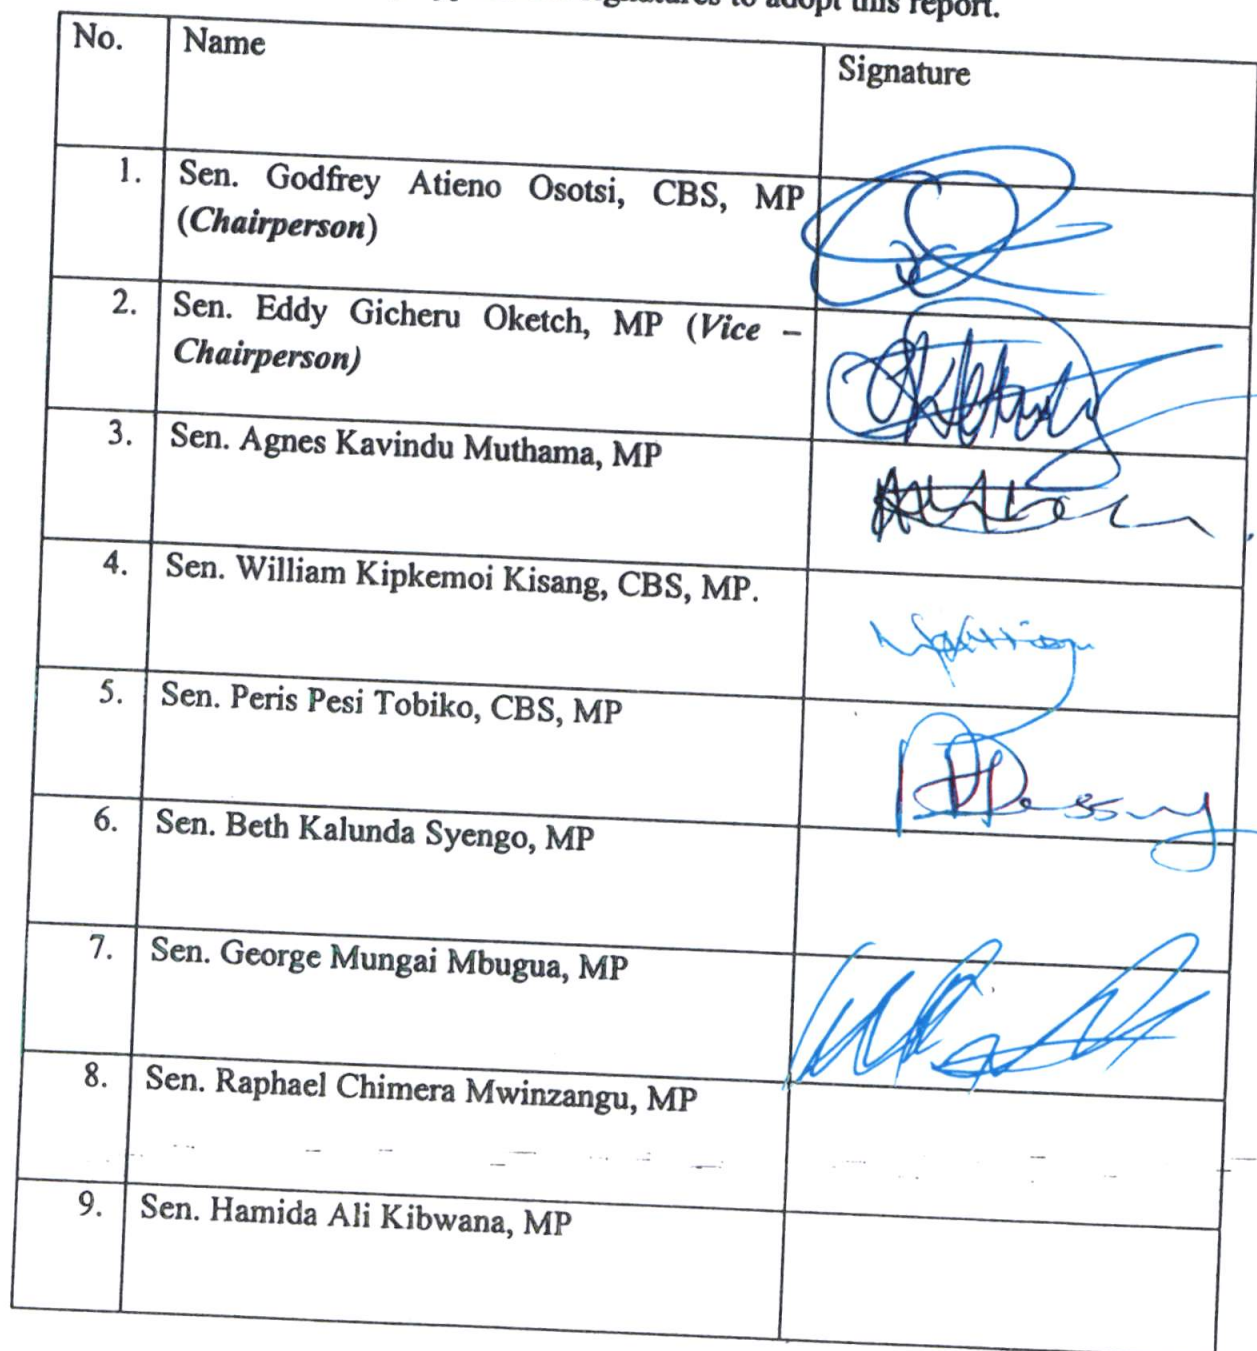 signatures to adopt this report.
No. Name Signature
1. Sen. Godfrey Atieno Osotsi, CBS, MP
(Chairperson)
2. Sen. Eddy Gicheru Oketch, MP (Vice –
Chairperson)
3. Sen. Agnes Kavindu Muthama, MP
4. Sen. William Kipkemoi Kisang, CBS, MP.
5. Sen. Peris Pesi Tobiko, CBS, MP
6. Sen. Beth Kalunda Syengo, MP
7. Sen. George Mungai Mbugua, MP
8. Sen. Raphael Chimera Mwinzangu, MP
9. Sen. Hamida Ali Kibwana, MP